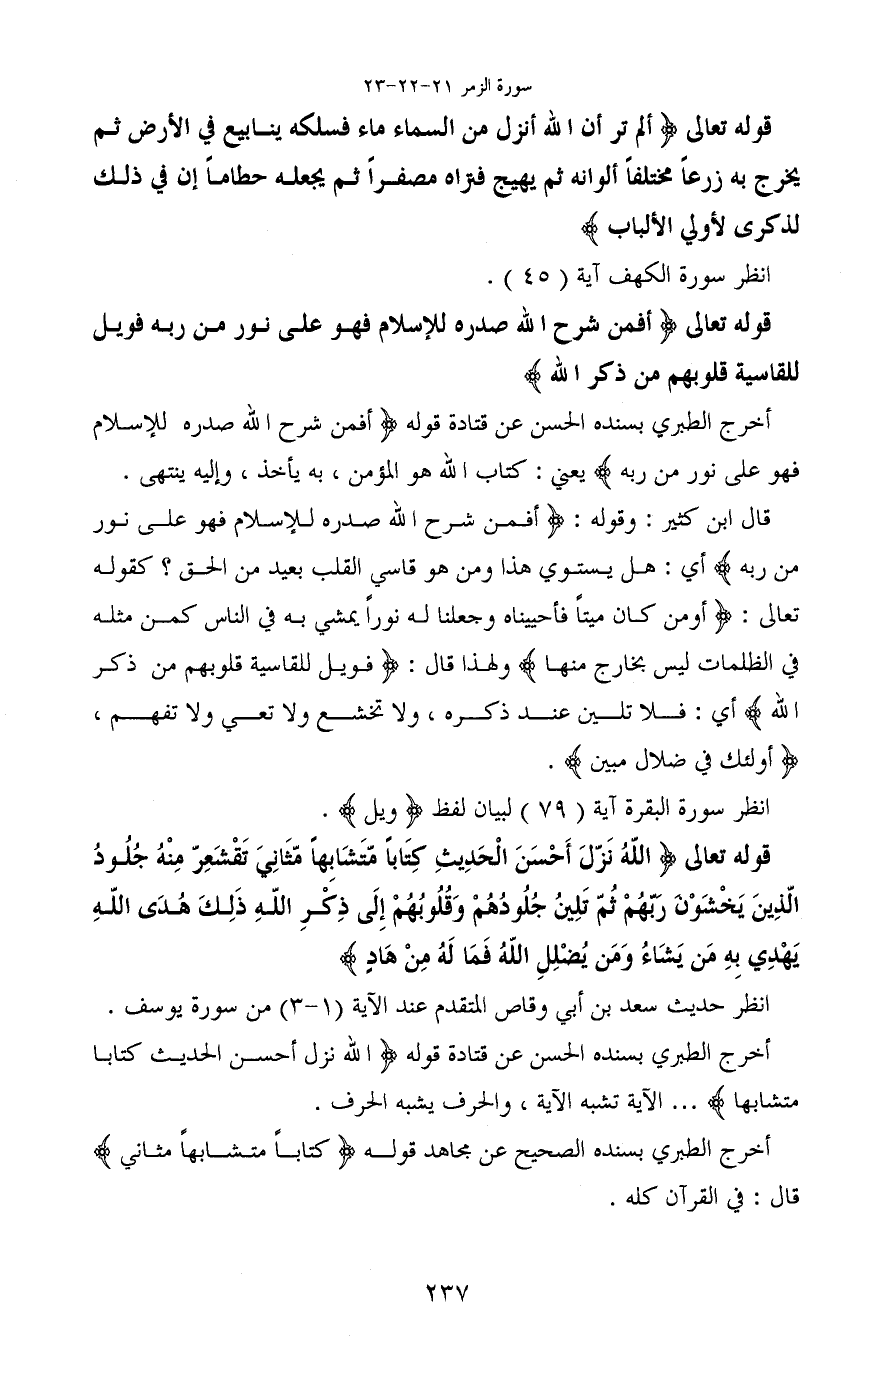 سورة الزمر ٢١-٢٢-٢٣
قوله تعالى ﴿ ألم تر أن الله أنزل من السماء ماء فسلكه ينابيع في الأرض ثم
يخرج به زرعاً مختلفاً ألوانه ثم يهيج فتراه مصفراً ثم يجعله حطاماً إن في ذلك
لذكرى لأولي الألباب ﴾
انظر سورة الكهف آية ( ٤٥ ) .
قوله تعالى ﴿ أفمن شرح الله صدره للإسلام فهو على نور من ربه فويل
للقاسية قلوبهم من ذكر الله ﴾
أخرج الطبري بسنده الحسن عن قتادة قوله ﴿ أفمن شرح الله صدره للإسلام
فهو على نور من ربه ﴾ يعني : كتاب الله هو المؤمن ، به يأخذ ، وإليه ينتهى .
قال ابن كثير : وقوله : ﴿ أفمن شرح الله صدره للإسلام فهو على نور
من ربه ﴾ أي : هل يستوي هذا ومن هو قاسي القلب بعيد من الحق ؟ كقوله
تعالى : ﴿ أومن كان ميتاً فأحييناه وجعلنا له نوراً يمشي به في الناس كمن مثله
في الظلمات ليس بخارج منها ﴾ ولهذا قال : ﴿ فويل للقاسية قلوبهم من ذكر
الله ﴾ أي : فلا تلين عند ذكره ، ولا تخشع ولا تعي ولا تفهم ،
﴿ أولئك في ضلال مبين ﴾ .
انظر سورة البقرة آية ( ٧٩ ) لبيان لفظ ﴿ ويل ﴾ .
قوله تعالى ﴿ اللّهُ نَزّلَ أَحْسَنَ الْحَدِيثِ كِتَاباً مّتَشَابِهاً مّثَانِيَ تَقْشَعِرّ مِنْهُ جُلُودُ
الّذِينَ يَخْشَوْنَ رَبّهُمْ ثُمّ تَلِينُ جُلُودُهُمْ وَقُلُوبُهُمْ إِلَى ذِكْرِ اللّهِ ذَلِكَ هُدَى اللّهِ
يَهْدِي بِهِ مَن يَشَاءُ وَمَن يُضْلِلِ اللّهُ فَمَا لَهُ مِنْ هَادٍ ﴾
انظر حديث سعد بن أبي وقاص المتقدم عند الآية (١-٣) من سورة يوسف .
أخرج الطبري بسنده الحسن عن قتادة قوله ﴿ الله نزل أحسن الحديث كتابا
متشابها ﴾ ... الآية تشبه الآية ، والحرف يشبه الحرف .
أخرج الطبري بسنده الصحيح عن مجاهد قوله ﴿ كتاباً متشابهاً مثاني ﴾
قال : في القرآن كله .
٢٣٧